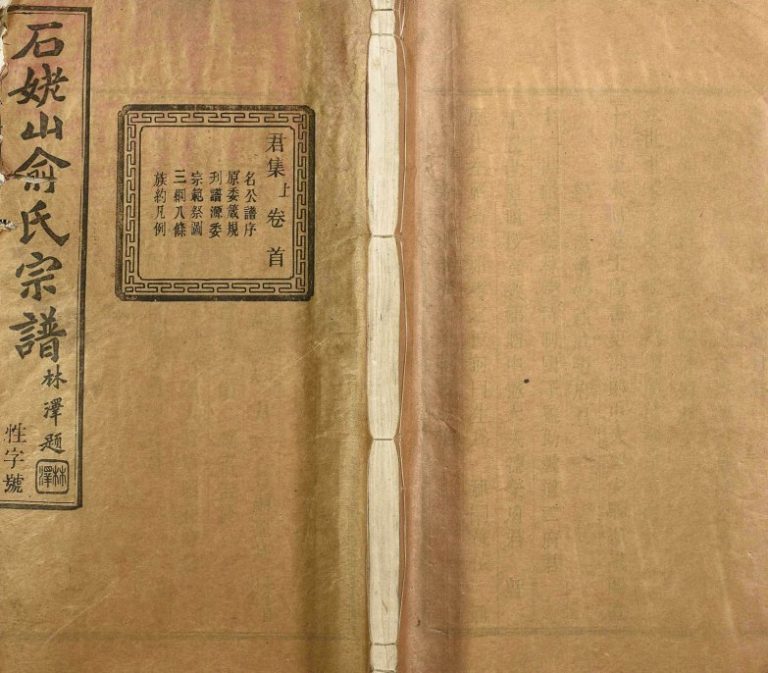 君集上卷首
名公譜序
原委箴規
刋譜源委
宗範祭圖
三綱八條
族約凡例
石姥山俞氏宗譜
林澤題
林澤
性字號